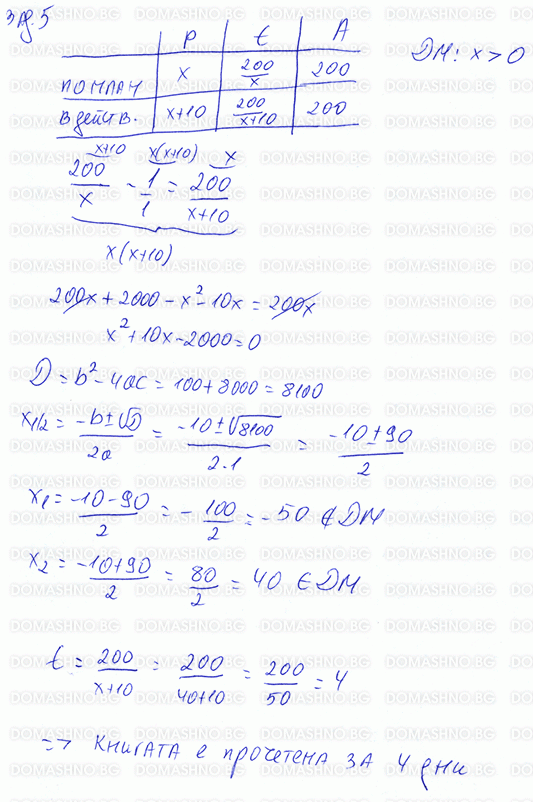 Зад. 5
P t A
ДМ: x > 0
по план x 200/x 200
в действ. x+10 200/(x+10) 200
x+10 x(x+10) x
200/x - 1/1 = 200/(x+10)
x(x+10)
200x + 2000 - x² - 10x = 200x
x² + 10x - 2000 = 0
D = b² - 4ac = 100 + 8000 = 8100
x1/2 = (-b ± √D)/2a = (-10 ± √8100)/(2.1) = (-10 ± 90)/2
x₁ = (-10 - 90)/2 = - 100/2 = -50 ∉ ДМ
x₂ = (-10 + 90)/2 = 80/2 = 40 ∈ ДМ
t = 200/(x+10) = 200/(40+10) = 200/50 = 4
=> Книгата е прочетена за 4 дни
DOMASHNO.BG